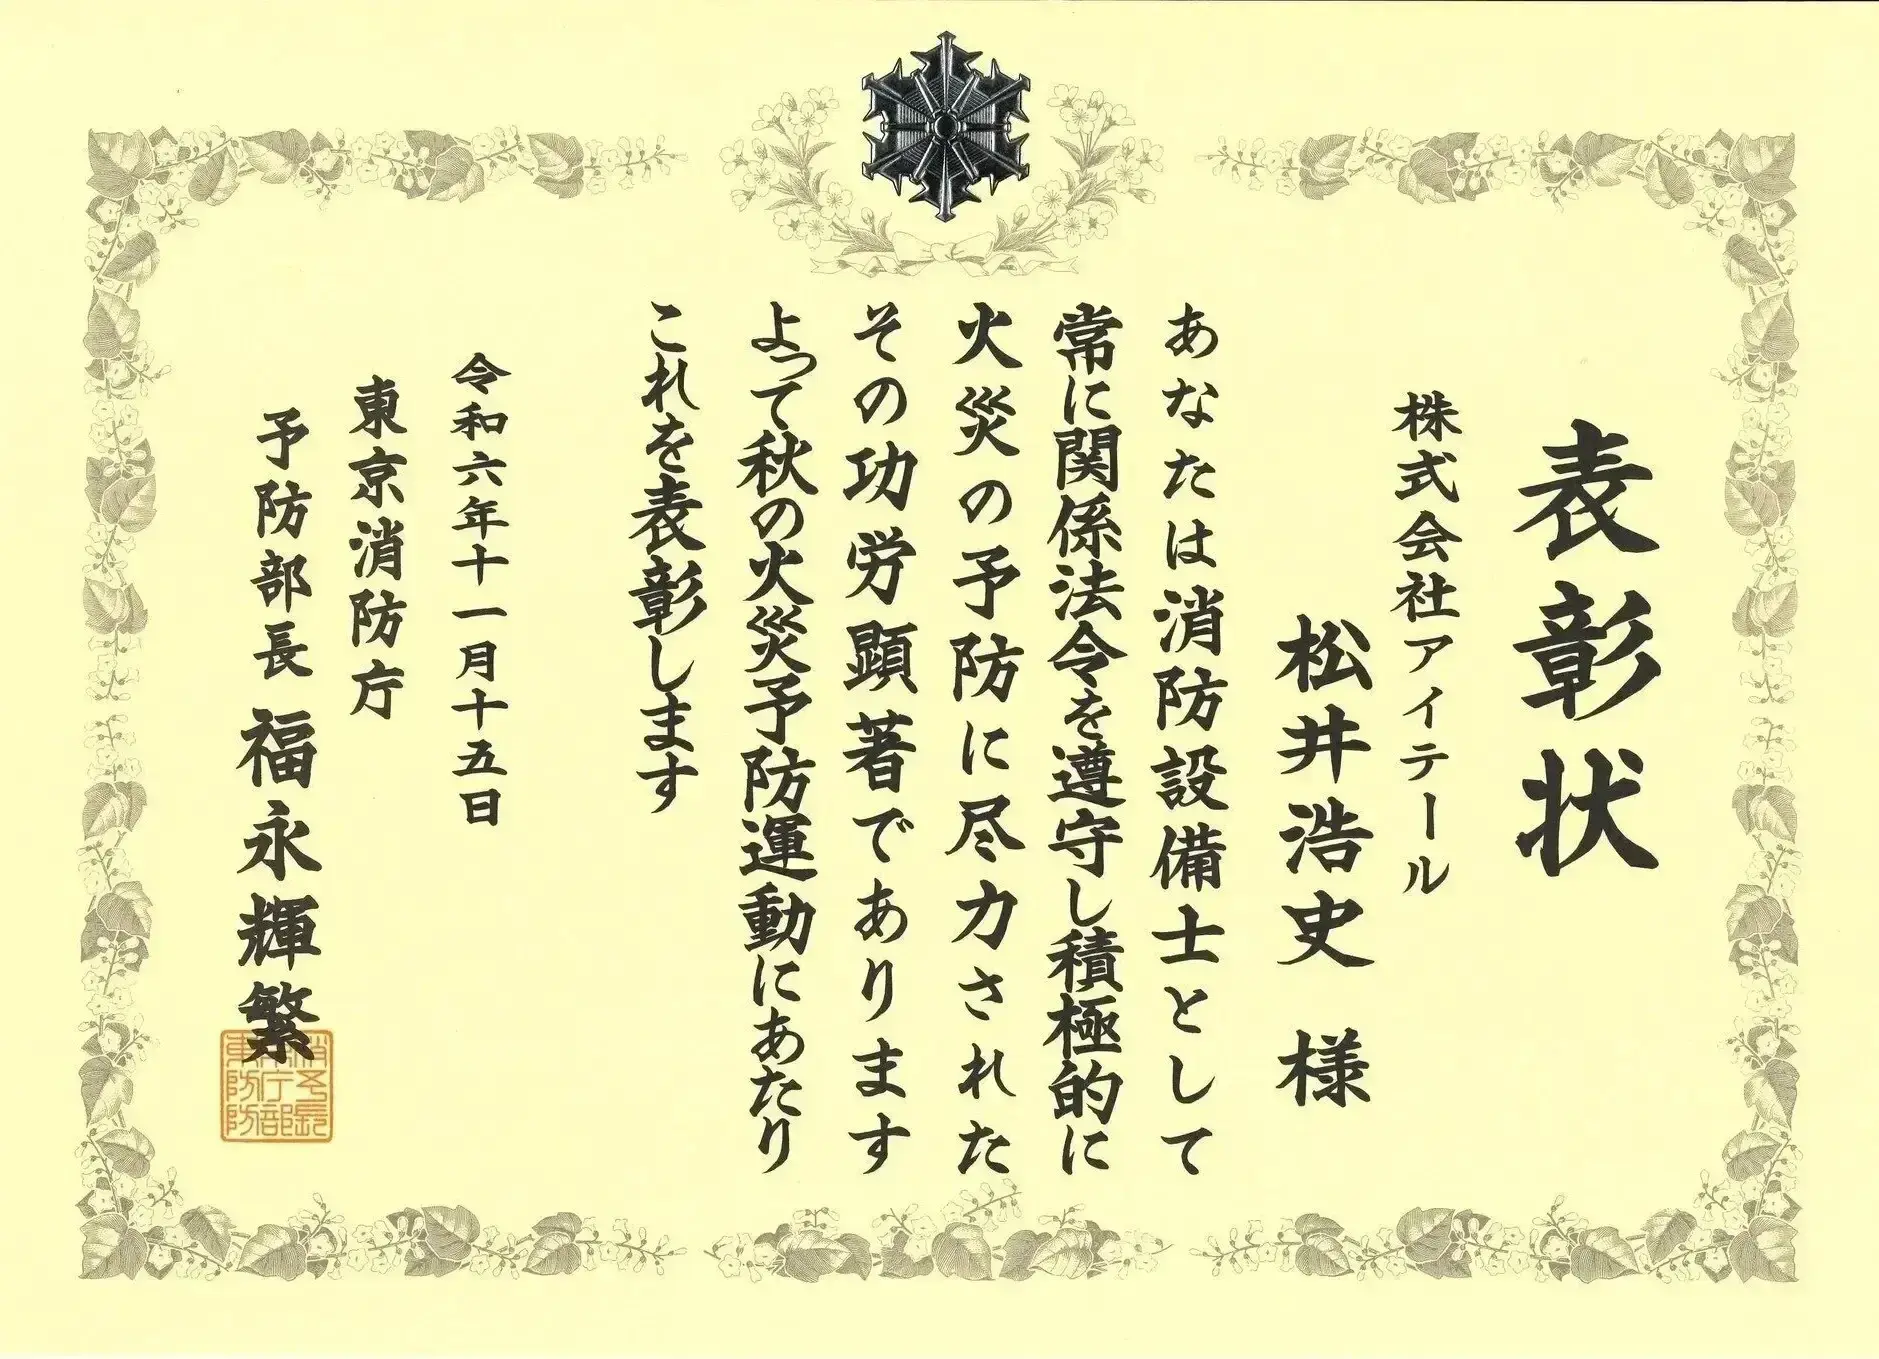 表彰状
株式会社アイテール
松井浩史 様
あなたは消防設備士として
常に関係法令を遵守し積極的に
火災の予防に尽力された
その功労顕著であります
よって秋の火災予防運動にあたり
これを表彰します
令和六年十一月十五日
東京消防庁
予防部長 福永輝繁